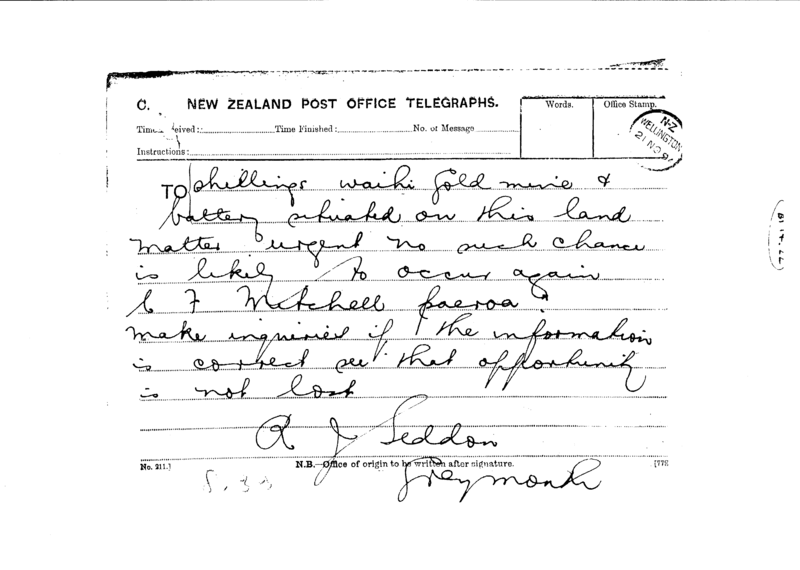 C. NEW ZEALAND POST OFFICE TELEGRAPHS.
Words. Office Stamp.
Time Received: Time Finished: No. of Message
Instructions:
N-Z
WELLINGTON
21 NO
TO shillings waihi gold mine &
battery situated on this land
matter urgent no such chance
is likely to occur again
C F Mitchell paeroa
make inquiries if the information
is correct see that opportunity
is not lost
R J Seddon
No. 211.] N.B.—Office of origin to be written after signature. [775
Greymouth
8.30